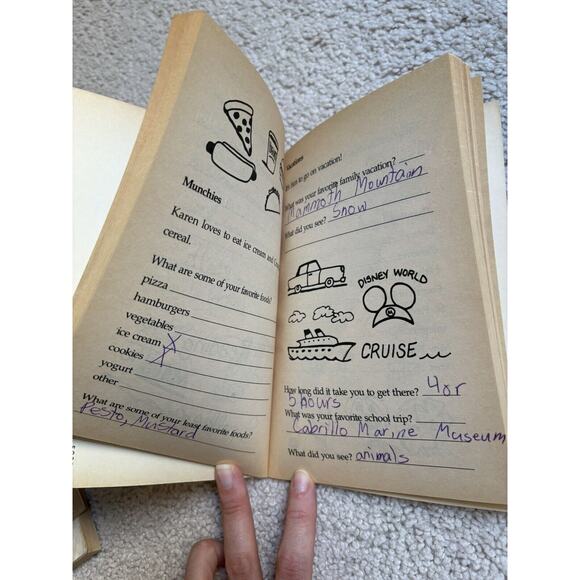 Munchies
Karen loves to eat ice cream and
cereal.
What are some of your favorite foods?
pizza
hamburgers
vegetables
ice cream X
cookies X
yogurt
other
What are some of your least favorite foods?
Pesto, Mustard
Vacations
It's fun to go on vacation!
What was your favorite family vacation?
Mammoth Mountain
What did you see? Snow
DISNEY WORLD
CRUISE
How long did it take you to get there? 4 or
5 hours
What was your favorite school trip?
Cabrillo Marine Museum
What did you see? animals